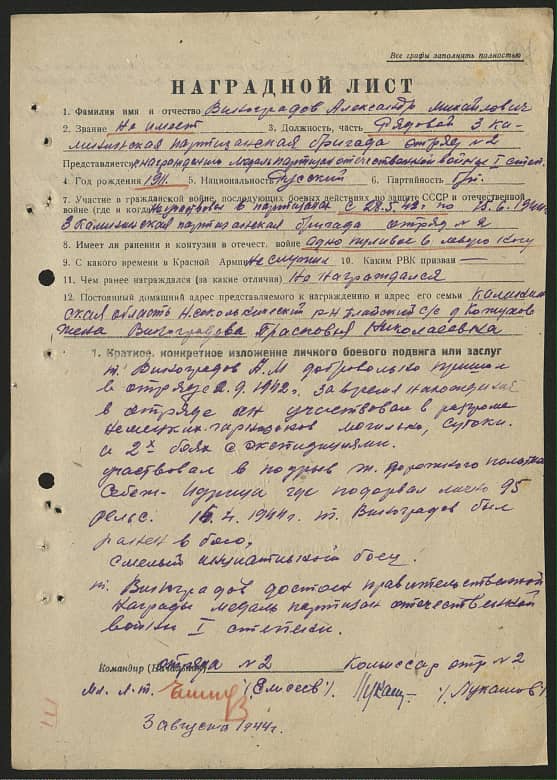 Все графы заполнять полностью
НАГРАДНОЙ ЛИСТ
1. Фамилия имя и отчество Виноградов Александр Михайлович
2. Звание Не имеет 3. Должность, часть Рядовой 3 Ка-
лининская партизанская бригада отряд №2
Представляется к награждению медаль партизан отечественной войны I степ.
4. Год рождения 1911. 5. Национальность Русский 6. Партийность б/п.
7. Участие в гражданской войне, последующих боевых действиях по защите СССР и отечественной
войне (где и когда) в партизанах с 28.5.42г. по 15.6.1944г.
3 Калининская партизанская бригада отряд №2
8. Имеет ли ранения и контузии в отечест. войне одно пулевое в левую ногу
9. С какого времени в Красной Армии Не служил 10. Каким РВК призван —
11. Чем ранее награждался (за какие отличия) Не награждался
12. Постоянный домашний адрес представляемого к награждению и адрес его семьи Калинин
ская область р-н с/с д. Кожухово
жена Виноградова Прасковья Николаевна
1. Краткое, конкретное изложение личного боевого подвига или заслуг
т. Виноградов А.М добровольно пришел
в отряд 2.9.1942г. За время нахождения
в отряде он участвовал в разгроме
немецких гарнизонов Могильно, Сутоки.
и 2х боях с экспедициями.
участвовал в подрыв ж. дорожного полотна
Себеж-Идрица где подорвал лично 95
рельс. 15.4.1944г. т. Виноградов был
ранен в бою.
Смелый инициативный боец.
т. Виноградов достоен правительственной
награды медаль партизан отечественной
войны I степени.
Командир (Начальник) отряда №2 Комиссар отр №2
Мл. л-т. (Елисеев). /Лукашов/
3 августа 1944г.